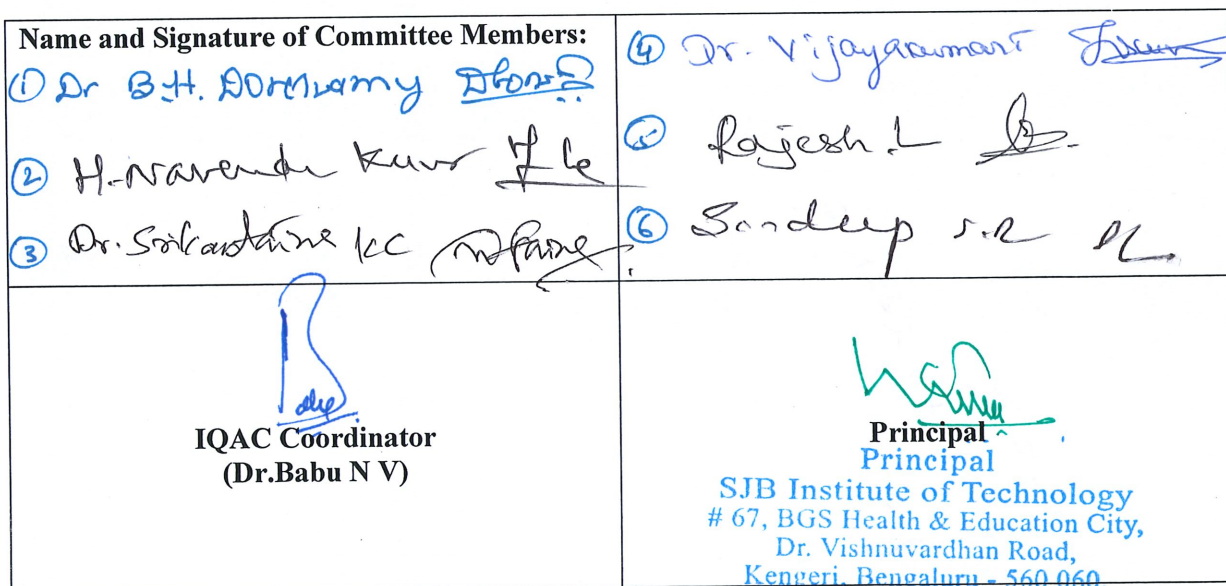 Name and Signature of Committee Members:
① Dr B.H. Doreswamy
② H. Narendra Kumar
③ Dr. Srikantaiah KC
④ Dr. Vijayakumari
⑤ Rajesh L
⑥ Sandeep S.R
IQAC Coordinator
(Dr.Babu N V)
Principal
Principal
SJB Institute of Technology
# 67, BGS Health & Education City,
Dr. Vishnuvardhan Road,
Kengeri, Bengaluru - 560 060